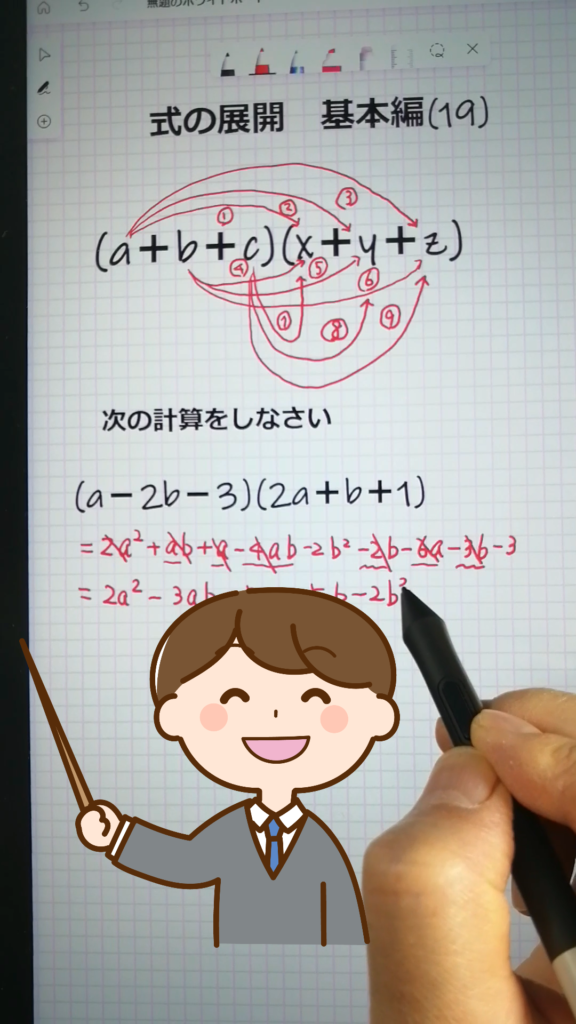 無題のホワイトボード
式の展開 基本編(19)
① ② ③
(a+b+c)(x+y+z)
④ ⑤ ⑥
⑦ ⑧ ⑨
次の計算をしなさい
(a-2b-3)(2a+b+1)
=2a²+ab+a-4ab-2b²-2b-6a-3b-3
=2a²-3ab b-2b²